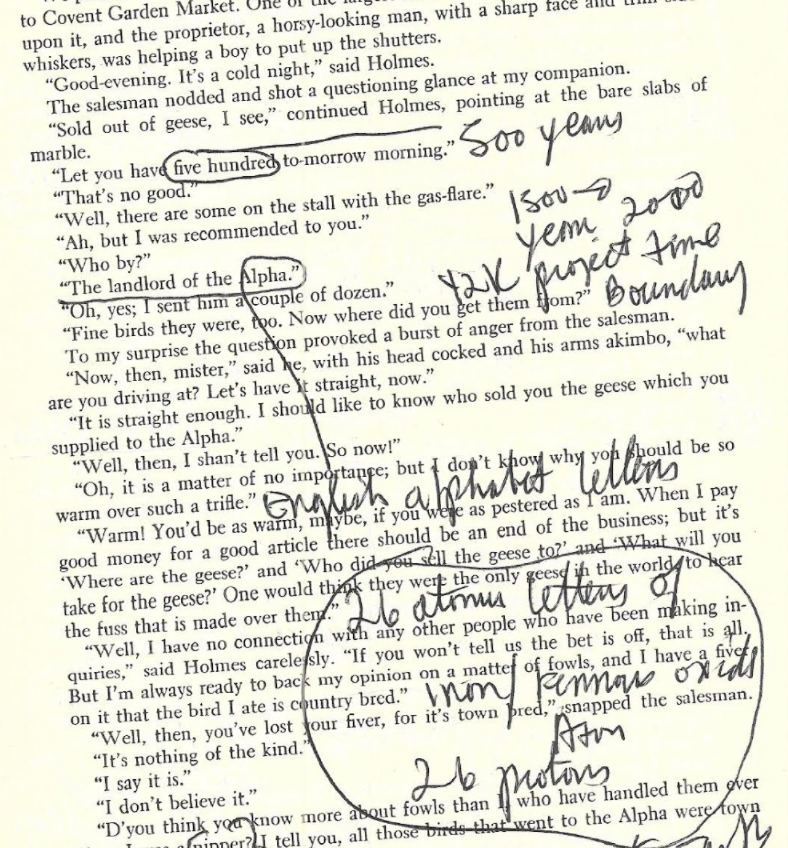 to Covent Garden Market. One of the
upon it, and the proprietor, a horsy-looking man, with a sharp face and
whiskers, was helping a boy to put up the shutters.
“Good-evening. It's a cold night,” said Holmes.
The salesman nodded and shot a questioning glance at my companion.
“Sold out of geese, I see,” continued Holmes, pointing at the bare slabs of
marble.
“Let you have five hundred to-morrow morning.” 500 years
“That's no good.”
“Well, there are some on the stall with the gas-flare.” 1500
“Ah, but I was recommended to you.” 2000
“Who by?” Y2K project time
“The landlord of the Alpha.” Boundary
“Oh, yes; I sent him a couple of dozen.”
“Fine birds they were, too. Now where did you get them from?”
To my surprise the question provoked a burst of anger from the salesman.
“Now, then, mister,” said he, with his head cocked and his arms akimbo, “what
are you driving at? Let's have it straight, now.”
“It is straight enough. I should like to know who sold you the geese which you
supplied to the Alpha.”
“Well, then, I shan't tell you. So now!”
“Oh, it is a matter of no importance; but I don't know why you should be so
warm over such a trifle.” English alphabet letters
“Warm! You'd be as warm, maybe, if you were as pestered as I am. When I pay
good money for a good article there should be an end of the business; but it's
‘Where are the geese?’ and ‘Who did you sell the geese to?’ and ‘What will you
take for the geese?’ One would think they were the only geese in the world, to hear
the fuss that is made over them.” 26 letters of
“Well, I have no connection with any other people who have been making in-
quiries,” said Holmes carelessly. “If you won't tell us the bet is off, that is all.
But I'm always ready to back my opinion on a matter of fowls, and I have a fiver
on it that the bird I ate is country bred.” iron/
“Well, then, you've lost your fiver, for it's town bred,” snapped the salesman.
“It's nothing of the kind.”
“I say it is.” 26 protons
“I don't believe it.”
“D'you think you know more about fowls than I, who have handled them ever
nipper? I tell you, all those birds that went to the Alpha were town